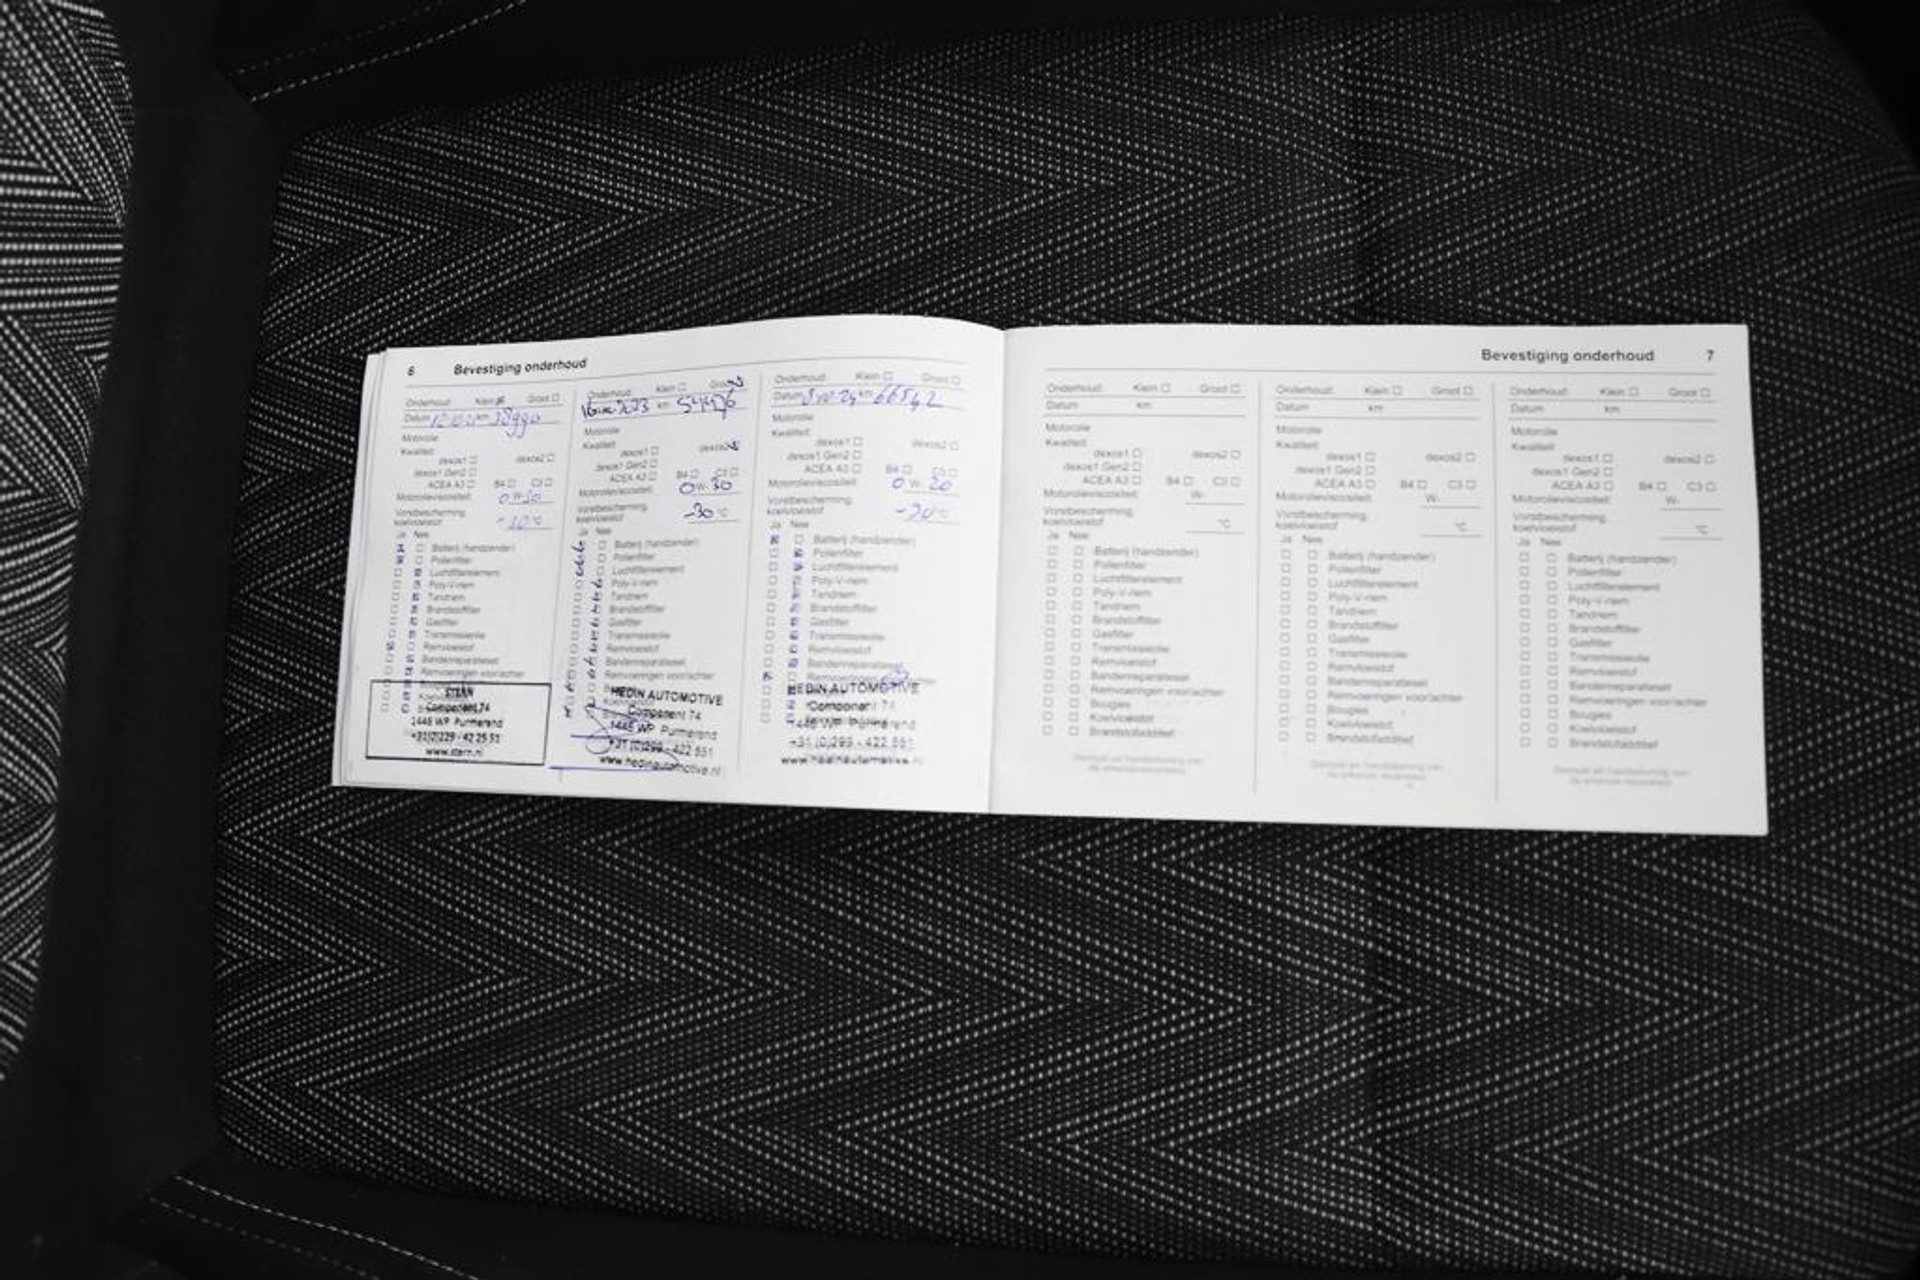 6 Bevestiging onderhoud
Onderhoud: Klein Groot
Datum km 38990
Motorolie
Kwaliteit:
dexos1 dexos2
dexos1 Gen2
ACEA A3 B4 C3
Motorolieviscositeit: 0 W-
Vorstbescherming,
koelvloeistof °C
Ja Nee
Batterij (handzender)
Pollenfilter
Luchtfilterelement
Poly-V-riem
Tandriem
Brandstoffilter
Gasfilter
Transmissieolie
Remvloeistof
Bandenreparatieset
Remvoeringen voor/achter
STERN
Component 74
1446 WP Purmerend
www.stern.nl
Onderhoud: Klein Groot
2023 km
Motorolie
Kwaliteit:
dexos1 dexos2
dexos1 Gen2
ACEA A3 B4 C3
Motorolieviscositeit: 0 W-30
Vorstbescherming,
koelvloeistof -30 °C
Ja Nee
Batterij (handzender)
Pollenfilter
Luchtfilterelement
Poly-V-riem
Tandriem
Brandstoffilter
Gasfilter
Transmissieolie
Remvloeistof
Bandenreparatieset
Remvoeringen voor/achter
HEDIN AUTOMOTIVE
Component 74
1446 WP Purmerend
+31 (0)299 - 422 551
www.hedinautomotive.nl
Onderhoud: Klein Groot
Datum km 66542
Motorolie
Kwaliteit:
dexos1 dexos2
dexos1 Gen2
ACEA A3 B4 C3
Motorolieviscositeit: 0 W-20
Vorstbescherming,
koelvloeistof °C
Ja Nee
Batterij (handzender)
Pollenfilter
Luchtfilterelement
Poly-V-riem
Tandriem
Brandstoffilter
Gasfilter
Transmissieolie
Remvloeistof
Bandenreparatieset
HEDIN AUTOMOTIVE
Component 74
1446 WP Purmerend
+31 (0)299 - 422 551
www.hedinautomotive.nl
Bevestiging onderhoud 7
Onderhoud: Klein Groot
Datum km
Motorolie
Kwaliteit:
dexos1 dexos2
dexos1 Gen2
ACEA A3 B4 C3
Motorolieviscositeit: W-
Vorstbescherming,
koelvloeistof °C
Ja Nee
Batterij (handzender)
Pollenfilter
Luchtfilterelement
Poly-V-riem
Tandriem
Brandstoffilter
Gasfilter
Transmissieolie
Remvloeistof
Bandenreparatieset
Remvoeringen voor/achter
Bougies
Koelvloeistof
Brandstofadditief
Stempel en handtekening van
de erkende reparateur
Onderhoud: Klein Groot
Datum km
Motorolie
Kwaliteit:
dexos1 dexos2
dexos1 Gen2
ACEA A3 B4 C3
Motorolieviscositeit: W-
Vorstbescherming,
koelvloeistof °C
Ja Nee
Batterij (handzender)
Pollenfilter
Luchtfilterelement
Poly-V-riem
Tandriem
Brandstoffilter
Gasfilter
Transmissieolie
Remvloeistof
Bandenreparatieset
Remvoeringen voor/achter
Bougies
Koelvloeistof
Brandstofadditief
Stempel en handtekening van
de erkende reparateur
Onderhoud: Klein Groot
Datum km
Motorolie
Kwaliteit:
dexos1 dexos2
dexos1 Gen2
ACEA A3 B4 C3
Motorolieviscositeit: W-
Vorstbescherming,
koelvloeistof °C
Ja Nee
Batterij (handzender)
Pollenfilter
Luchtfilterelement
Poly-V-riem
Tandriem
Brandstoffilter
Gasfilter
Transmissieolie
Remvloeistof
Bandenreparatieset
Remvoeringen voor/achter
Bougies
Koelvloeistof
Brandstofadditief
Stempel en handtekening van
de erkende reparateur